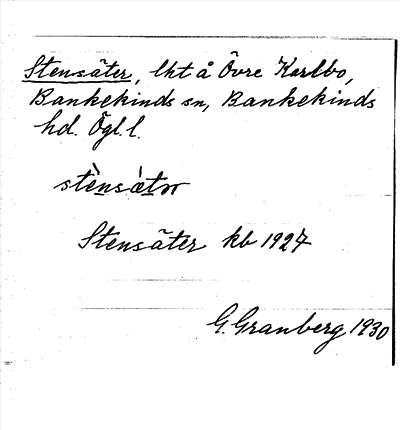 Stensäter, lht å Övre Karlbo,
Bankekinds sn, Bankekinds
hd. Ögl. l.
stènsætər
Stensäter kb 1927
G. Granberg 1930